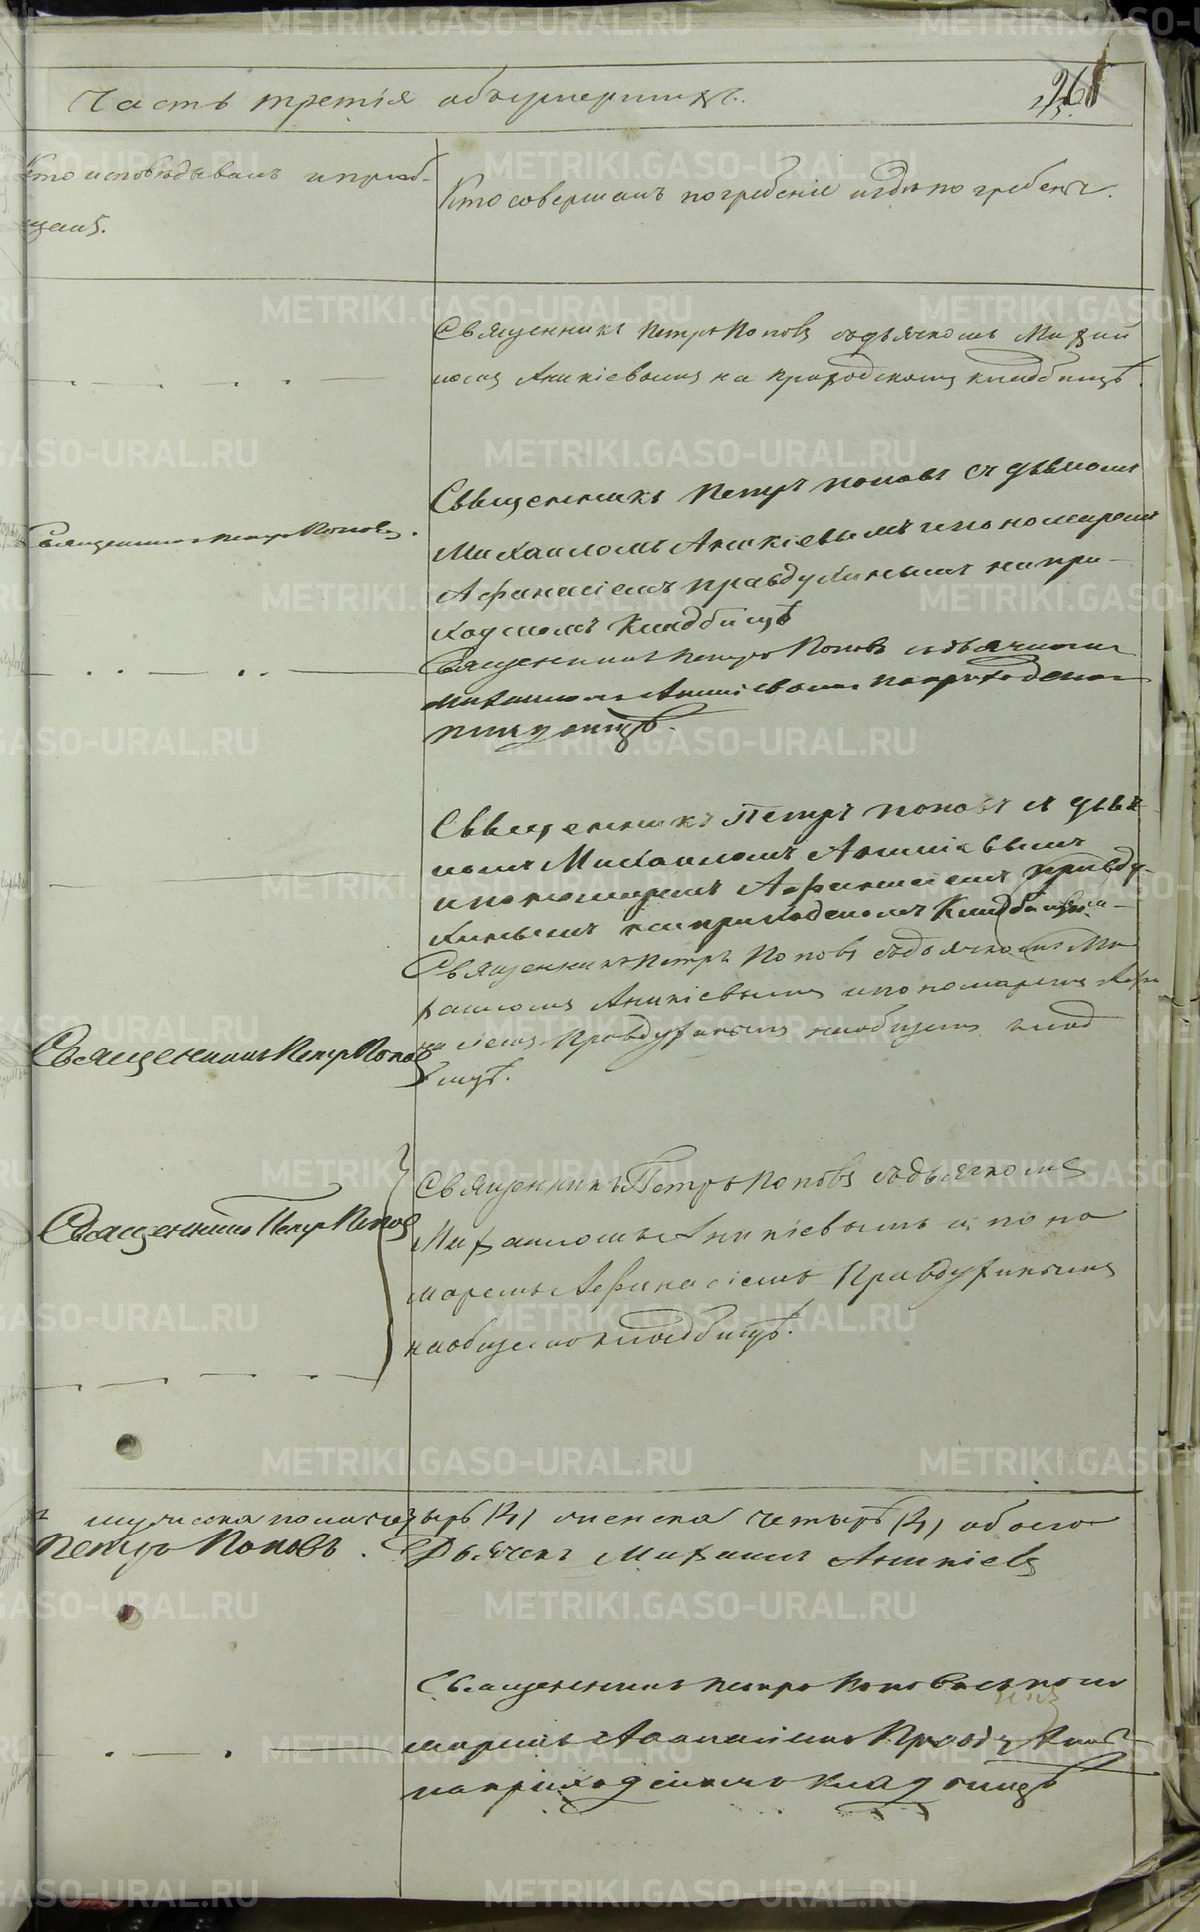 Часть третія объумершихъ.
261
Кто исповѣдывалъ и приоб-
щалъ.
Кто совершалъ погребеніе и гдѣ погребены.
Священникъ Петръ Поповъ съ дьячкомъ Михаи
ломъ Аникіевымъ на приходскомъ кладбищѣ.
Священникъ Петръ Поповъ съ дьячкомъ
Михаиломъ Аникіевымъ и пономаремъ
Афанасіемъ Правдухинымъ на при-
ходскомъ кладбищѣ
Священникъ Петръ Поповъ.
Священникъ Петръ Поповъ съ дьячкомъ
Михаиломъ Аникіевымъ на приходскомъ
кладбищѣ.
Священникъ Петръ Поповъ съ дьяч
комъ Михаиломъ Аникіевымъ
и пономаремъ Афанасіемъ Правду-
хинымъ на приходскомъ кладбищѣ
Священникъ Петръ Поповъ съ дьячкомъ Ми
хаиломъ Аникіевымъ и пономаремъ Афа
насіемъ Правдухинымъ на общемъ клад
бищѣ.
Священникъ Петръ Поповъ
Священникъ Петръ Поповъ съ дьячкомъ
Михаиломъ Аникіевымъ и поно
маремъ Афанасіемъ Правдухинымъ
на общемъ кладбищѣ.
Священникъ Петръ Поповъ
мужеска пола четыре (4) женска четыре (4) обоего
Петръ Поповъ.
Дьячекъ Михаилъ Аникіевъ
Священникъ Петръ Поповъ съ поно
маремъ Афанасіемъ Правдухинымъ
на приходскомъ кладбищѣ
METRIKI.GASO-URAL.RU